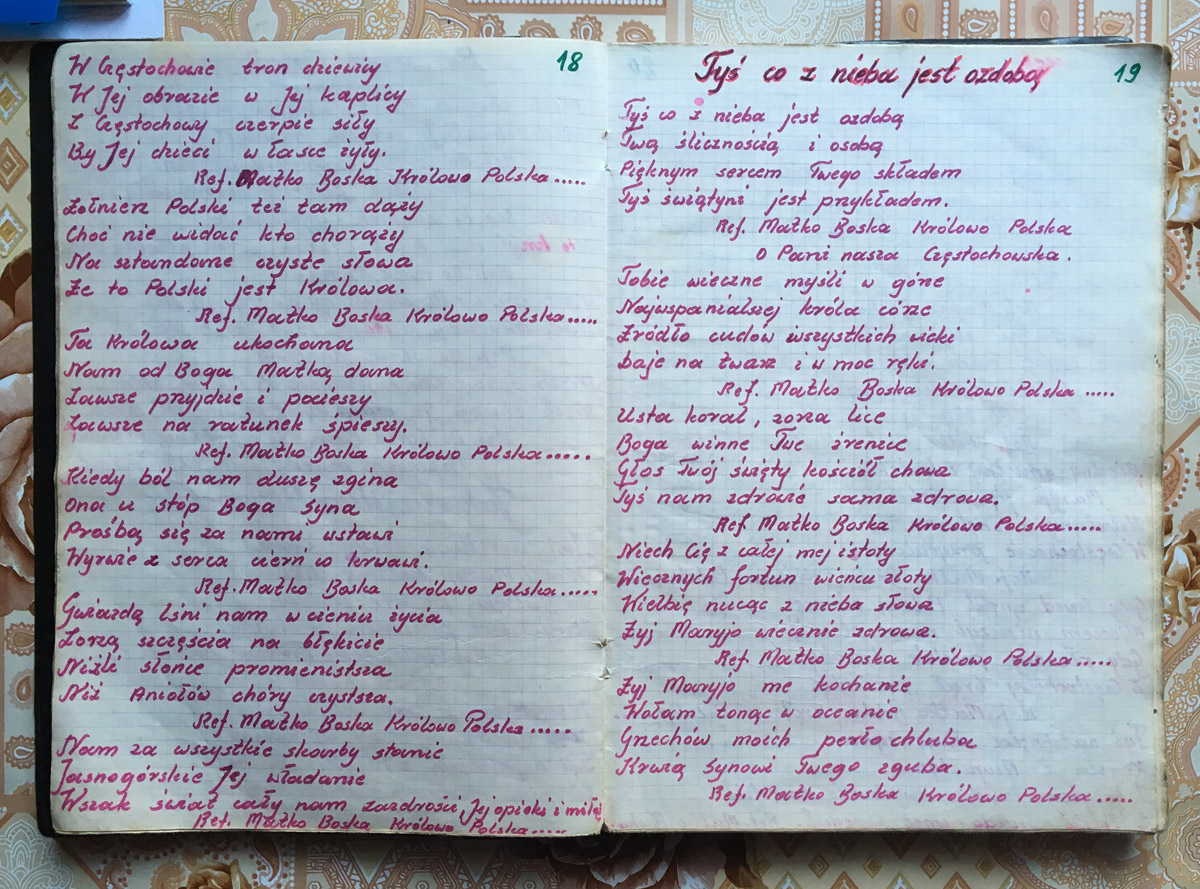 18
W Częstochowie tron dziewiy
W Jej obrazie w Jej kaplicy
Z Częstochowy czerpie siły
By Jej dzieci w łasce żyły.
Ref. Matko Boska Królowo Polska.....
Żołnierz Polski też tam dąży
Choć nie widać kto chorąży
Na sztandarze czyste słowa
Że to Polski jest Królowa.
Ref. Matko Boska Królowo Polska.....
Ta Królowa ukochana
Nam od Boga Matką dana
Zawsze przyjdzie i pocieszy
Zawsze na ratunek śpieszy.
Ref. Matko Boska Królowo Polska.....
Kiedy ból nam duszę zgina
Ona u stóp Boga Syna
Prośbą się za nami wstawi
Wyrwie z serca cierń co krwawi.
Ref. Matko Boska Królowo Polska.....
Gwiazdą lśni nam w cieniu życia
Zorzą szczęścia na błękicie
Niźli słońce promienistsza
Niż Aniołów chóry czystsza.
Ref. Matko Boska Królowo Polska.....
Nam za wszystkie skarby stanie
Jasnogórskie Jej władanie
Wszak świat cały nam zazdrości, Jej opieki i miłoś
Ref. Matko Boska Królowo Polska.....
19
Tyś co z nieba jest ozdobą
Tyś co z nieba jest ozdobą
Twą ślicznością i osobą
Pięknym sercem Twego składem
Tyś świątyni jest przykładem.
Ref. Matko Boska Królowo Polska
O Pani nasza Częstochowska.
Tobie wieczne myśli w górze
Najwspanialszej króla córze
Źródło cudów wszystkich wieki
Daje na twarz i w moc ręki.
Ref. Matko Boska Królowo Polska.....
Usta koral, zorza lice
Boga winne Twe źrenice
Głos Twój święty kościół chowa
Tyś nam zdrowie sama zdrowa.
Ref. Matko Boska Królowo Polska.....
Niech Cię z całej mej istoty
Wiecznych fortun wieńcu złoty
Wielbię nucąc z nieba słowa
Żyj Maryjo wiecznie zdrowa.
Ref. Matko Boska Królowo Polska.....
Żyj Maryjo me kochanie
Wołam tonąc w oceanie
Grzechów moich perło chluba
Krwią Synowi Twego zguba.
Ref. Matko Boska Królowo Polska.....